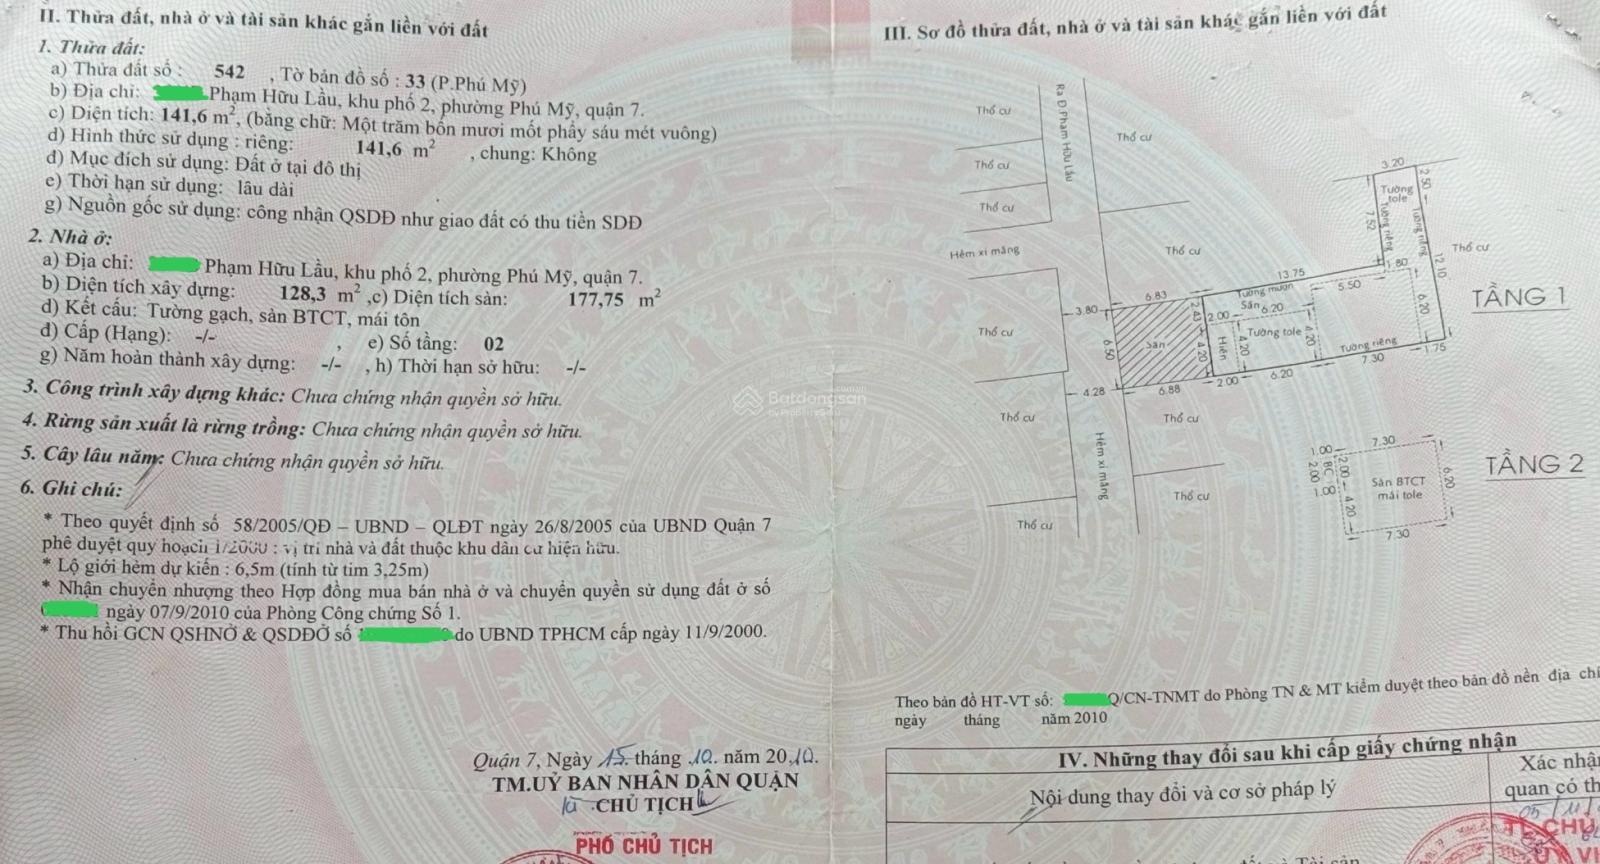 II. Thửa đất, nhà ở và tài sản khác gắn liền với đất
1. Thửa đất:
a) Thửa đất số : 542 , Tờ bản đồ số : 33 (P.Phú Mỹ)
b) Địa chỉ: Phạm Hữu Lầu, khu phố 2, phường Phú Mỹ, quận 7.
c) Diện tích: 141,6 m², (bằng chữ: Một trăm bốn mươi mốt phẩy sáu mét vuông)
d) Hình thức sử dụng : riêng: 141,6 m² , chung: Không
đ) Mục đích sử dụng: Đất ở tại đô thị
e) Thời hạn sử dụng: lâu dài
g) Nguồn gốc sử dụng: công nhận QSDĐ như giao đất có thu tiền SDĐ
2. Nhà ở:
a) Địa chỉ: Phạm Hữu Lầu, khu phố 2, phường Phú Mỹ, quận 7.
b) Diện tích xây dựng: 128,3 m² ,c) Diện tích sàn: 177,75 m²
d) Kết cấu: Tường gạch, sàn BTCT, mái tôn
đ) Cấp (Hạng): -/- , e) Số tầng: 02
g) Năm hoàn thành xây dựng: -/- , h) Thời hạn sở hữu: -/-
3. Công trình xây dựng khác: Chưa chứng nhận quyền sở hữu.
4. Rừng sản xuất là rừng trồng: Chưa chứng nhận quyền sở hữu.
5. Cây lâu năm: Chưa chứng nhận quyền sở hữu.
6. Ghi chú:
* Theo quyết định số 58/2005/QĐ – UBND – QLĐT ngày 26/8/2005 của UBND Quận 7
phê duyệt quy hoạch 1/2000 : vị trí nhà và đất thuộc khu dân cư hiện hữu.
* Lộ giới hẻm dự kiến : 6,5m (tính từ tim 3,25m)
* Nhận chuyển nhượng theo Hợp đồng mua bán nhà ở và chuyển quyền sử dụng đất ở số
ngày 07/9/2010 của Phòng Công chứng Số 1.
* Thu hồi GCN QSHNỞ & QSDĐỞ số do UBND TPHCM cấp ngày 11/9/2000.
Quận 7, Ngày 15 tháng 10. năm 2010.
TM.UỶ BAN NHÂN DÂN QUẬN
CHỦ TỊCH
PHÓ CHỦ TỊCH
III. Sơ đồ thửa đất, nhà ở và tài sản khác gắn liền với đất
Thổ cư
Ra Đ.Phạm Hữu Lầu
Thổ cư
Thổ cư
Thổ cư
Hẻm xi măng
Thổ cư
3.20
2.50
Tường tole
7.52
Tường riêng
Tường riêng
12.10
Thổ cư
1.80
13.75
5.50
6.20
Tường mượn
6.83
3.80
Sân 6.20
2.43
2.00
Tường tole
4.20
Thổ cư
6.50
Sân
4.20
Hiên
4.20
Tường riêng
1.75
7.30
6.20
2.00
6.88
4.28
TẦNG 1
Thổ cư
Thổ cư
Hẻm xi măng
Thổ cư
Thổ cư
7.30
1.00
2.00
BC
2.00
1.00
4.20
Sàn BTCT
mái tole
6.20
7.30
TẦNG 2
Batdongsan
.com.vn
by PropertyGuru
Theo bản đồ HT-VT số: Q/CN-TNMT do Phòng TN & MT kiểm duyệt theo bản đồ nền địa chí
ngày tháng năm 2010
IV. Những thay đổi sau khi cấp giấy chứng nhận
Nội dung thay đổi và cơ sở pháp lý
Xác nhận
quan có th